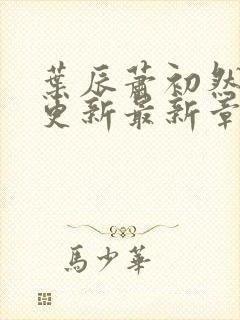 葉辰蕭初然
更新最新章
馬少華